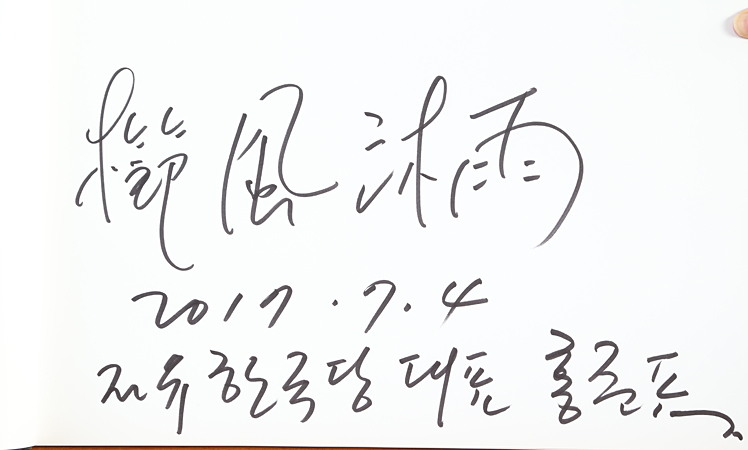 櫛風沐雨
2017.7.4
자유한국당 대표 홍준표